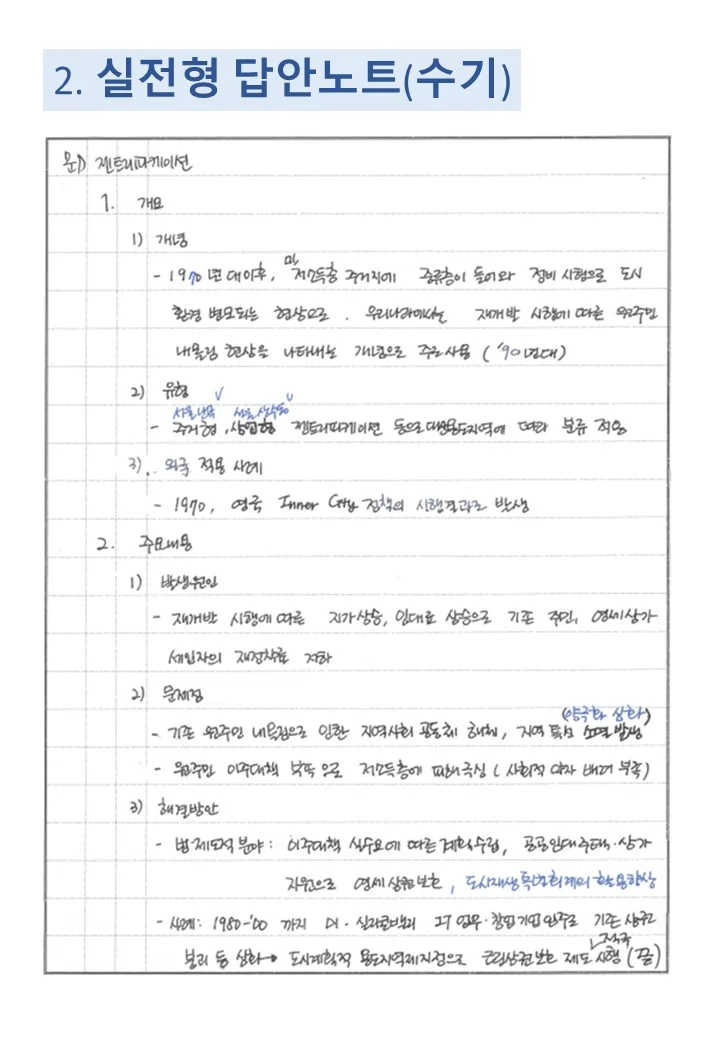 2. 실전형 답안노트(수기)
문1) 젠트리피케이션
1. 개요
1) 개념
- 1970년대이후, 저소득층 주거지에 중류층이 들어와 정비 시행으로 도시
환경 변모되는 현상으로. 우리나라에서는 재개발 시행에 따른 원주민
내몰림 현상을 나타내는 개념으로 주로 사용 ('90년대)
2) 유형
- 주거형, 상업형 젠트리피케이션 등으로 용도지역에 따라 분류 적용
3) 외국 적용 사례
- 1970, 영국 Inner City 정책의 시행결과로 발생
2. 주요내용
1) 발생원인
- 재개발 시행에 따른 지가상승, 임대료 상승으로 기존 주민, 영세상가
세입자의 재정착률 저하
2) 문제점
(양극화 심화)
- 기존 원주민 내몰림으로 인한 지역사회 공동체 해체, 지역 특성 소멸 발생
- 원주민 이주대책 부족으로 저소득층에 피해극심 (사회적 약자 배려 부족)
3) 해결방안
- 법·제도적 분야: 이주대책 실수요에 따른 계획수립, 공공임대주택·상가
지원으로 영세상권보호, 도시재생특별회계의 활용향상
- 사례: 1980-'00 까지 실리콘밸리 IT 업무·창업기업 입주로 기존 상권
분리 등 심화→ 도시계획적 용도지역제지정으로 근린상권보호 제도 적극 시행 (끝)